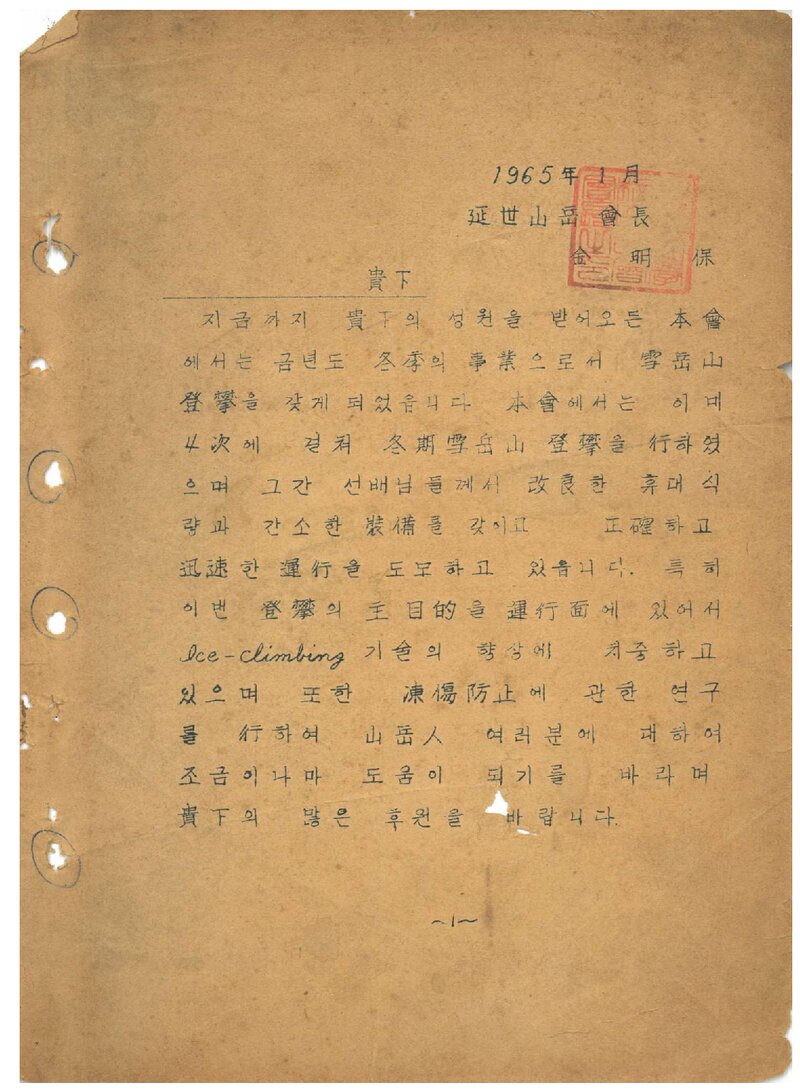 1965年 1月
延世山岳會長
金 明 保
貴下
지금까지 貴下의 성원을 받어오든 本會
에서는 금년도 冬季의 事業으로서 雪岳山
登攀을 갖게 되었읍니다 本會에서는 이미
4次에 걸쳐 冬期雪岳山 登攀을 行하였
으며 그간 선배님들께서 改良한 휴대식
량과 간소한 裝備를 갖이고 正確하고
迅速한 運行을 도모하고 있읍니다. 특히
이번 登攀의 主目的을 運行面에 있어서
Ice-climbing 기술의 향상에 치중하고
있으며 또한 凍傷防止에 관한 연구
를 行하여 山岳人 여러분에 대하여
조금이나마 도움이 되기를 바라며
貴下의 많은 후원을 바랍니다.
~1~